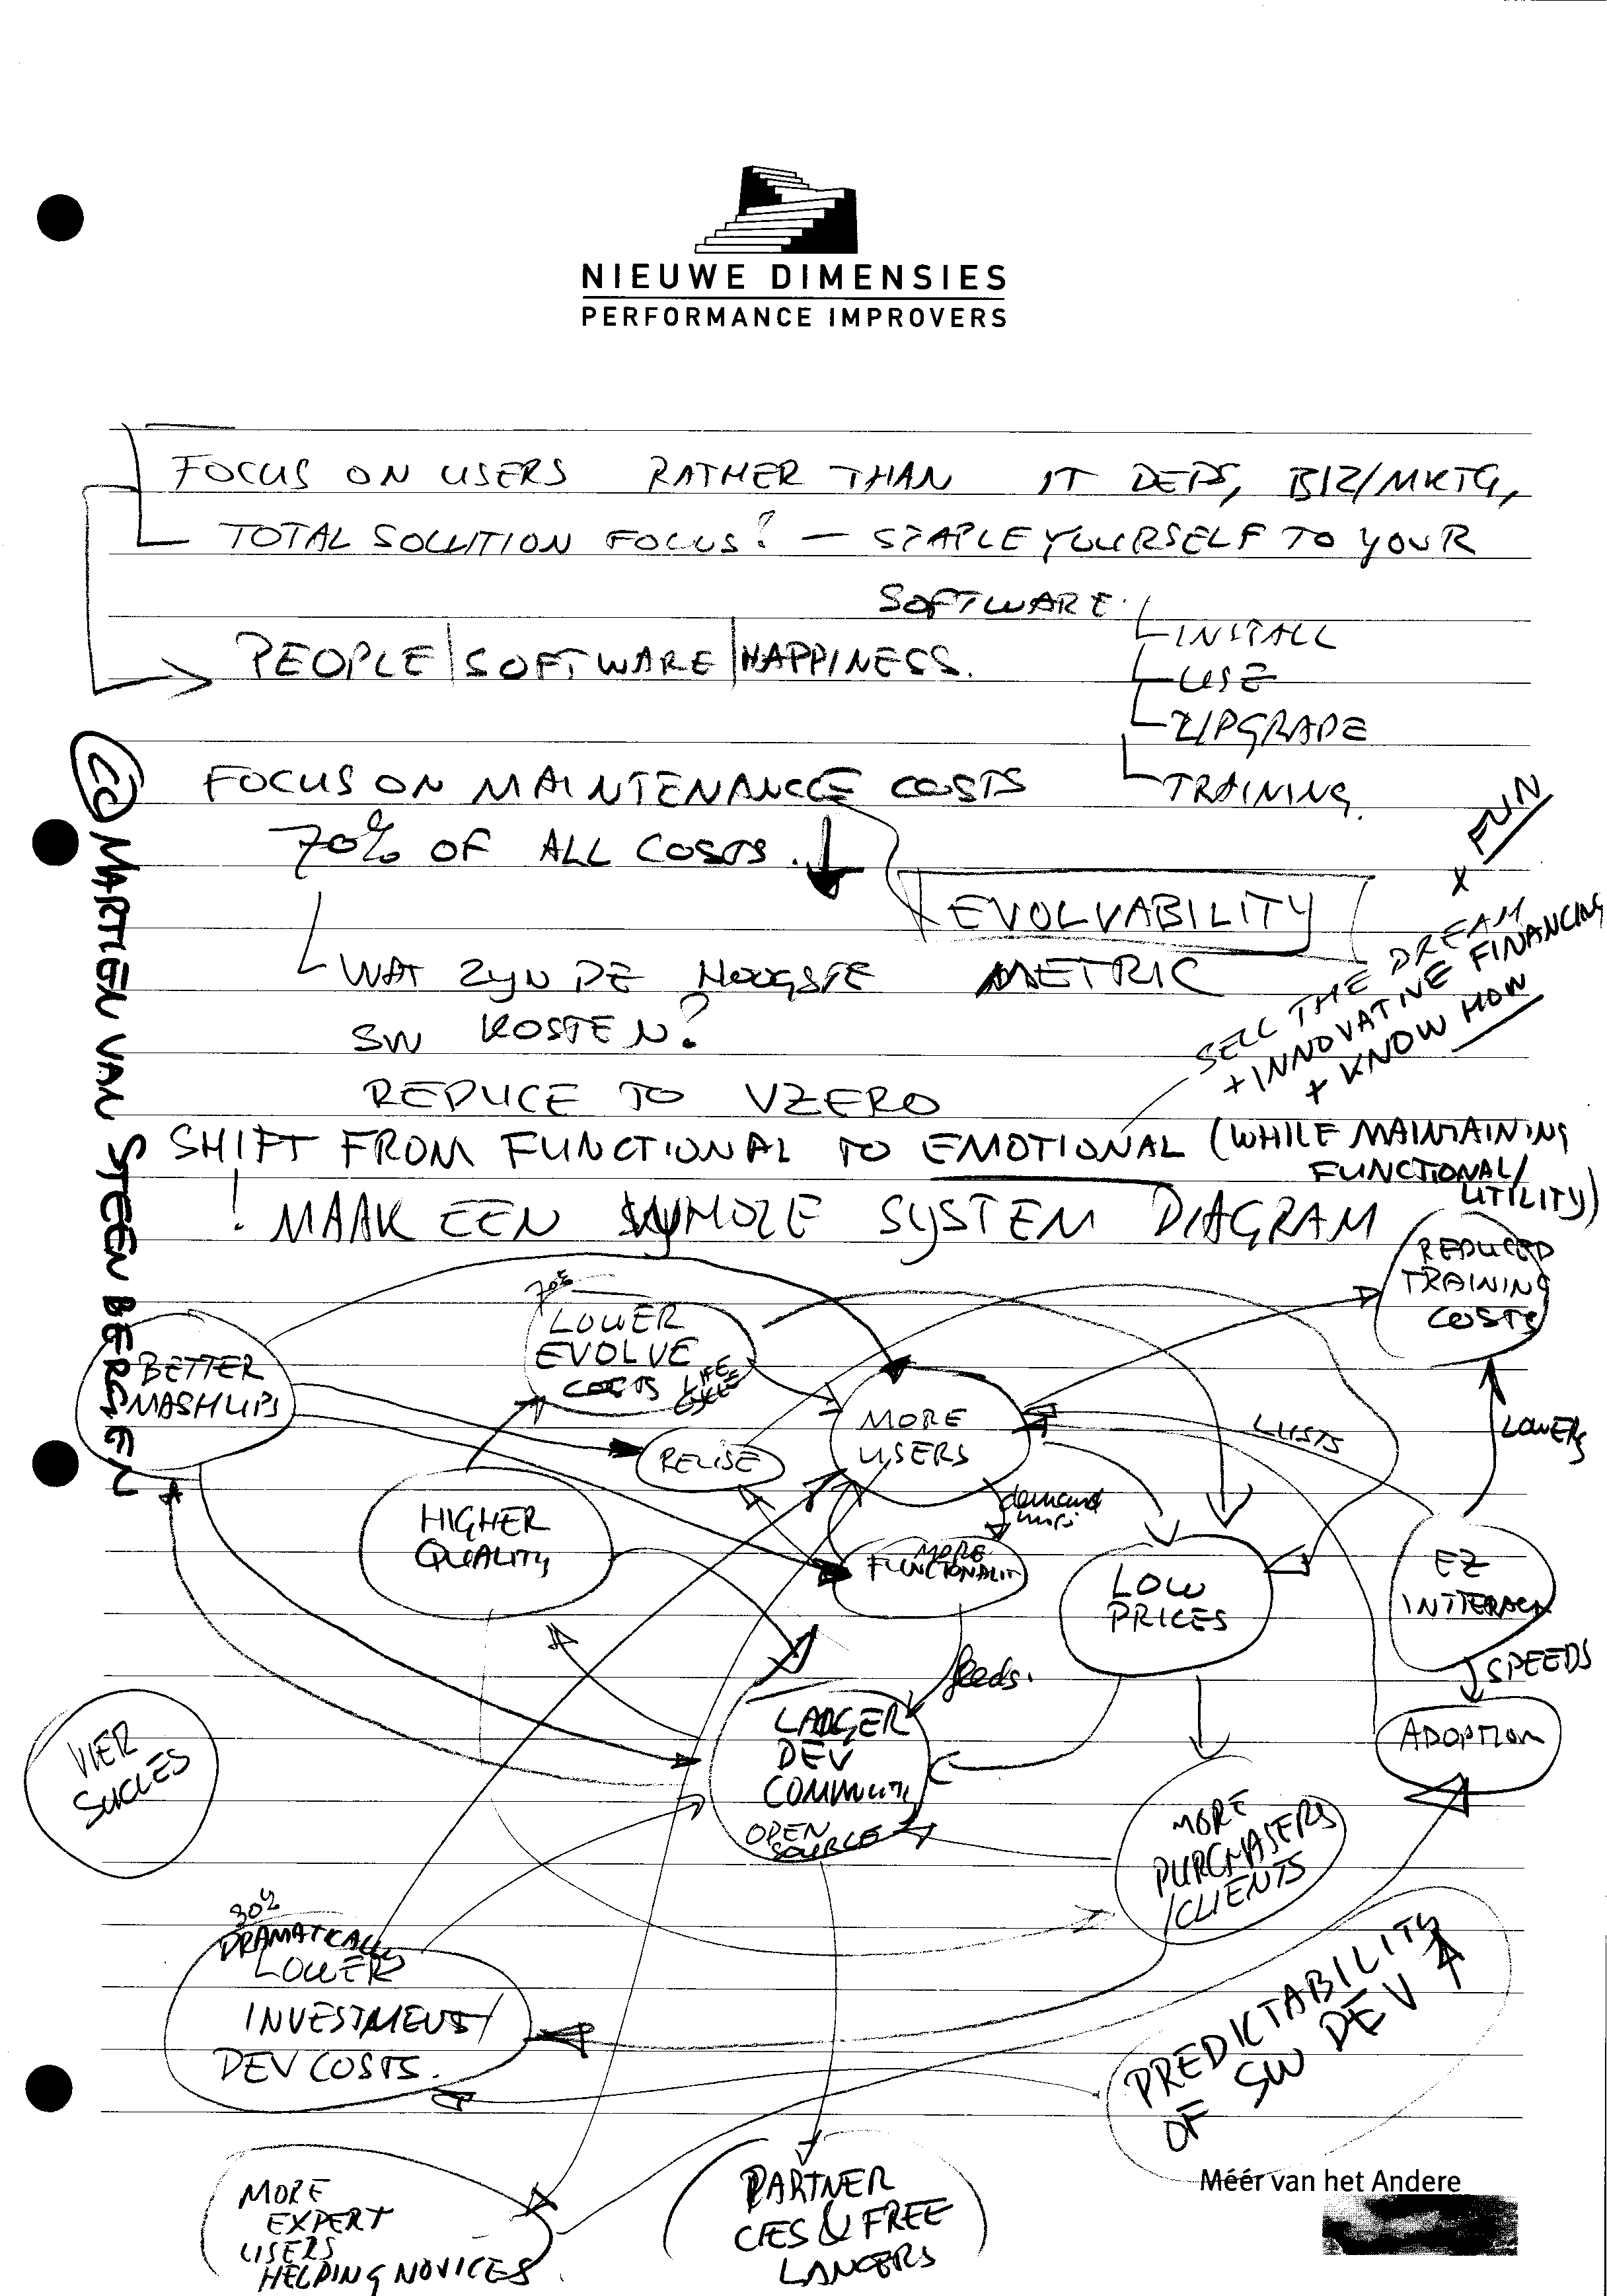 NIEUWE DIMENSIES
PERFORMANCE IMPROVERS
FOCUS ON USERS RATHER THAN IT DEPS, BIZ/MKTG,
TOTAL SOLUTION FOCUS? — STAPLE YOURSELF TO YOUR
SOFTWARE.
INSTALL
USE
UPGRADE
TRAINING.
PEOPLE|SOFTWARE|HAPPINESS.
FOCUS ON MAINTENANCE COSTS
70% OF ALL COSTS.
EVOLVABILITY
METRIC
WAT ZYN DE HOOGSTE
SW KOSTEN?
REDUCE TO ZERO
FUN
x
SELL THE DREAM
+ INNOVATIVE FINANCING
+ KNOW HOW
SHIFT FROM FUNCTIONAL TO EMOTIONAL (WHILE MAINTAINING
FUNCTIONAL/
UTILITY)
! MAAK EEN SYSTEM DIAGRAM
© MARTIEN VAN STEENBERGEN
REDUCED
TRAINING
COSTS
70%
LOWER
EVOLVE
COSTS LIFE
CYCLE
BETTER
MASHUPS
MORE
USERS
REUSE
LOWERS
HIGHER
QUALITY
demand
MORE
FUNCTIONALIT
LOW
PRICES
EZ
INTTERACN
SPEEDS
feeds.
LARGER
DEV
COMMUNITY
OPEN
SOURCE
ADOPTION
VIER
SUCCES
MORE
PURCHASERS
/CLIENTS
30%
DRAMATICALLY
LOWER
INVESTMENT/
DEV COSTS.
PREDIKTABILITY
OF SW DEV
MORE
EXPERT
USERS
HELPING NOVICES
PARTNER
CIES & FREE
LANCERS
Méér van het Andere